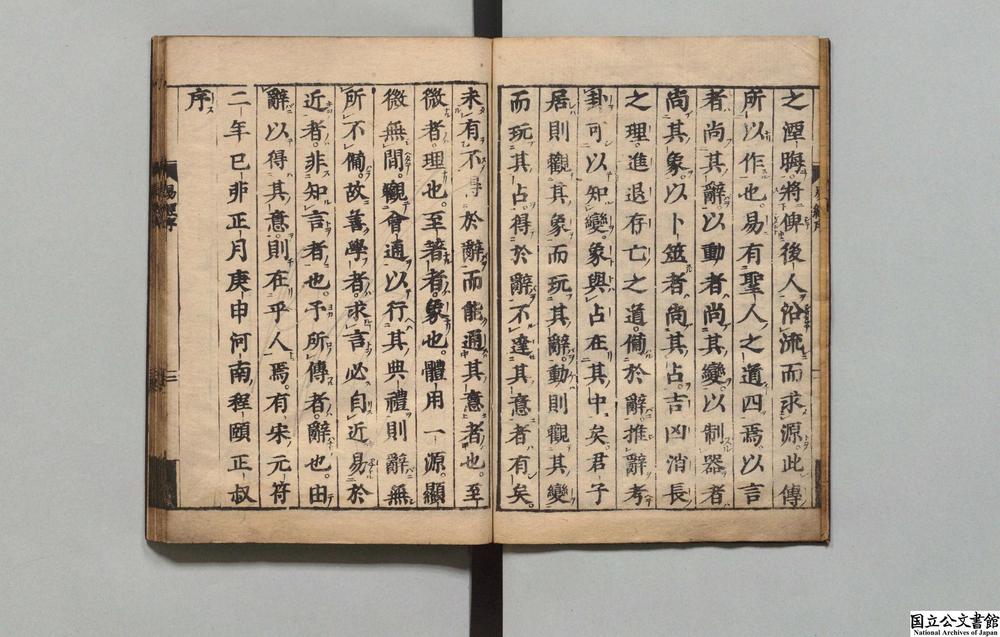 之湮晦。將俾後人沿流而求源。此傳
所以作也。易有聖人之道四焉以言
者尚其辭。以動者尚其變。以制器者
尚其象。以卜筮者尚其占。吉凶消長
之理。進退存亡之道。備於辭。推辭考
卦可以知變。象與占在其中矣。君子
居則觀其象而玩其辭。動則觀其變
而玩其占。得於辭不達其意者有矣。
未有不得於辭而能通其意者也。至
微者。理也。至著者。象也。體用一源。顯
微無間。觀會通以行其典禮則辭無
所不備。故善學者。求言必自近易於
近者。非知言者也。予所傳者。辭也。由
辭以得其意。則在乎人焉。有宋元符
二年已卯正月庚申河南程頤正叔
序
易經序
國立公文書館
National Archives of Japan